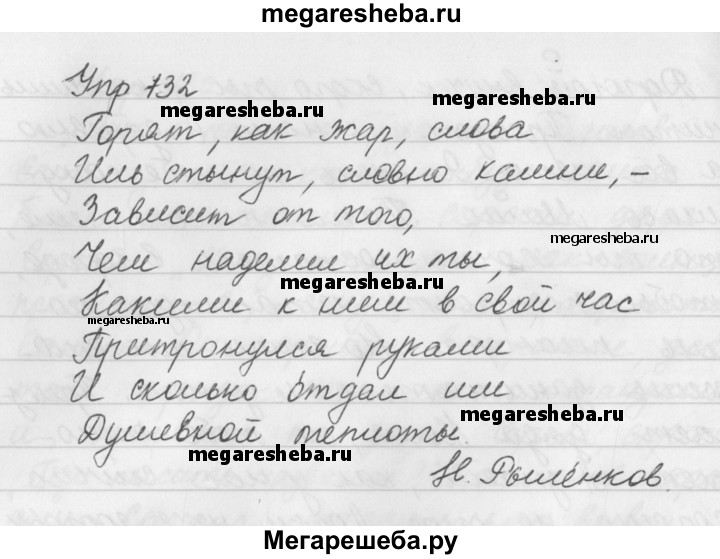 megaresheba.ru
Упр 732
megaresheba.ru
megaresheba.ru
Горят, как жар, слова
Иль стынут, словно камни, –
Зависит от того,
megaresheba.ru
Чем наделил их ты,
Какими к ним в свой час
megaresheba.ru
Притронулся руками
И сколько отдал им
megaresheba.ru
Душевной теплоты.
megaresheba.ru
Н. Рыленков.
Мегарешеба.ру